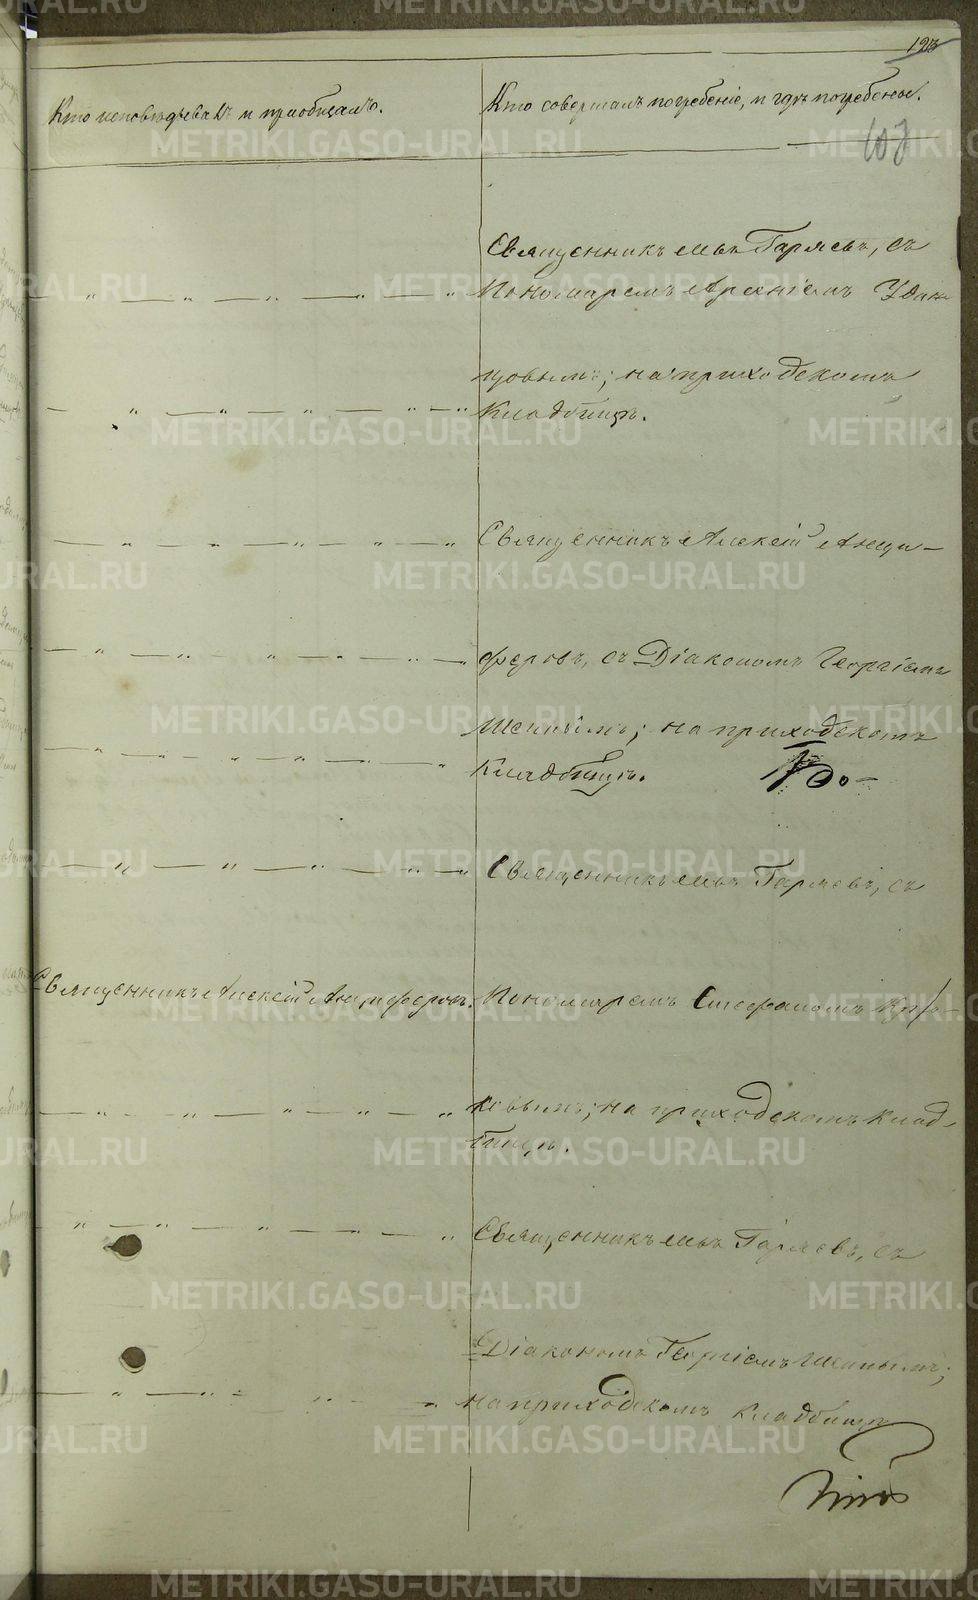 123
Кто исповѣдывалъ и пріобщалъ.
Кто совершалъ погребеніе, и гдѣ погребены.
107
Священникъ Илья Гаряевъ, съ
Пономаремъ Арсеніемъ Удин
цовымъ; на приходскомъ
Кладбищѣ.
Священникъ Алексій Анци-
феровъ, съ Діакономъ Георгіемъ
Шеинымъ; на приходскомъ
Кладбищѣ.
Священникъ Илья Гаряевъ, съ
Священникъ Алексій Анциферовъ.
Пономаремъ Стефаномъ
ковымъ; на приходскомъ клад-
бищѣ.
Священникъ Илья Гаряевъ, съ
Діакономъ Георгіемъ Шеинымъ;
на приходскомъ кладбищѣ
METRIKI.GASO-URAL.RU